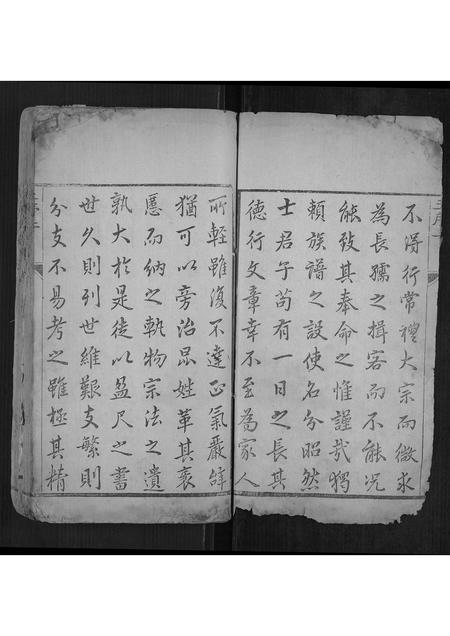 不得行常禮大宗而微求
為長孺之揖客而不能况
能致其奉命之惟謹哉猶
賴族譜之設使名分昭然
士君子苟有一日之長其
德行文章幸不至為家人
所輕雖復不達正氣嚴辭
猶可以旁治昆姓革其褻
慝而納之軌物宗法之遺
孰大於是徒以盈尺之書
世久則列世維艱支繁則
分支不易考之雖極其精